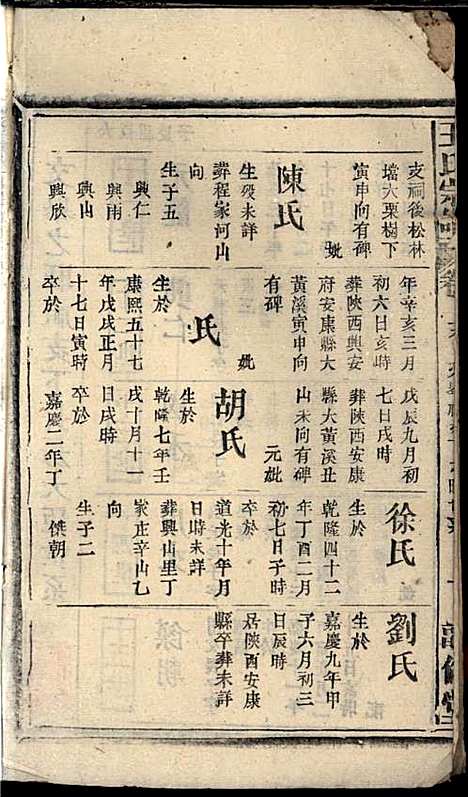 支祠後松林
壋大栗樹下
寅申向有碑
妣
陳氏
生歿未詳
葬程家河山
向
生子五
興仁
興雨
興山
興欣
年辛亥三月
初六日亥時
葬陝西興安
府安康縣大
黃溪寅申向
有碑
妣
氏
生於
康熙五十七
年戊戌正月
十七日寅時
卒於
戊辰九月初
七日戌時
葬陝西安康
縣大黃溪丑
山未向有碑
元妣
胡氏
生於
乾隆七年壬
戌十月十一
日戌時
卒於
嘉慶二年丁
徐氏
生於
乾隆四十二
年丁酉二月
初七日子時
卒於
道光十年月
日時未詳
葬興山里丁
家庄辛山乙
向
生子二
傑朝
劉氏
生於
嘉慶九年甲
子六月初三
日辰時
居陝西安康
縣卒葬未詳